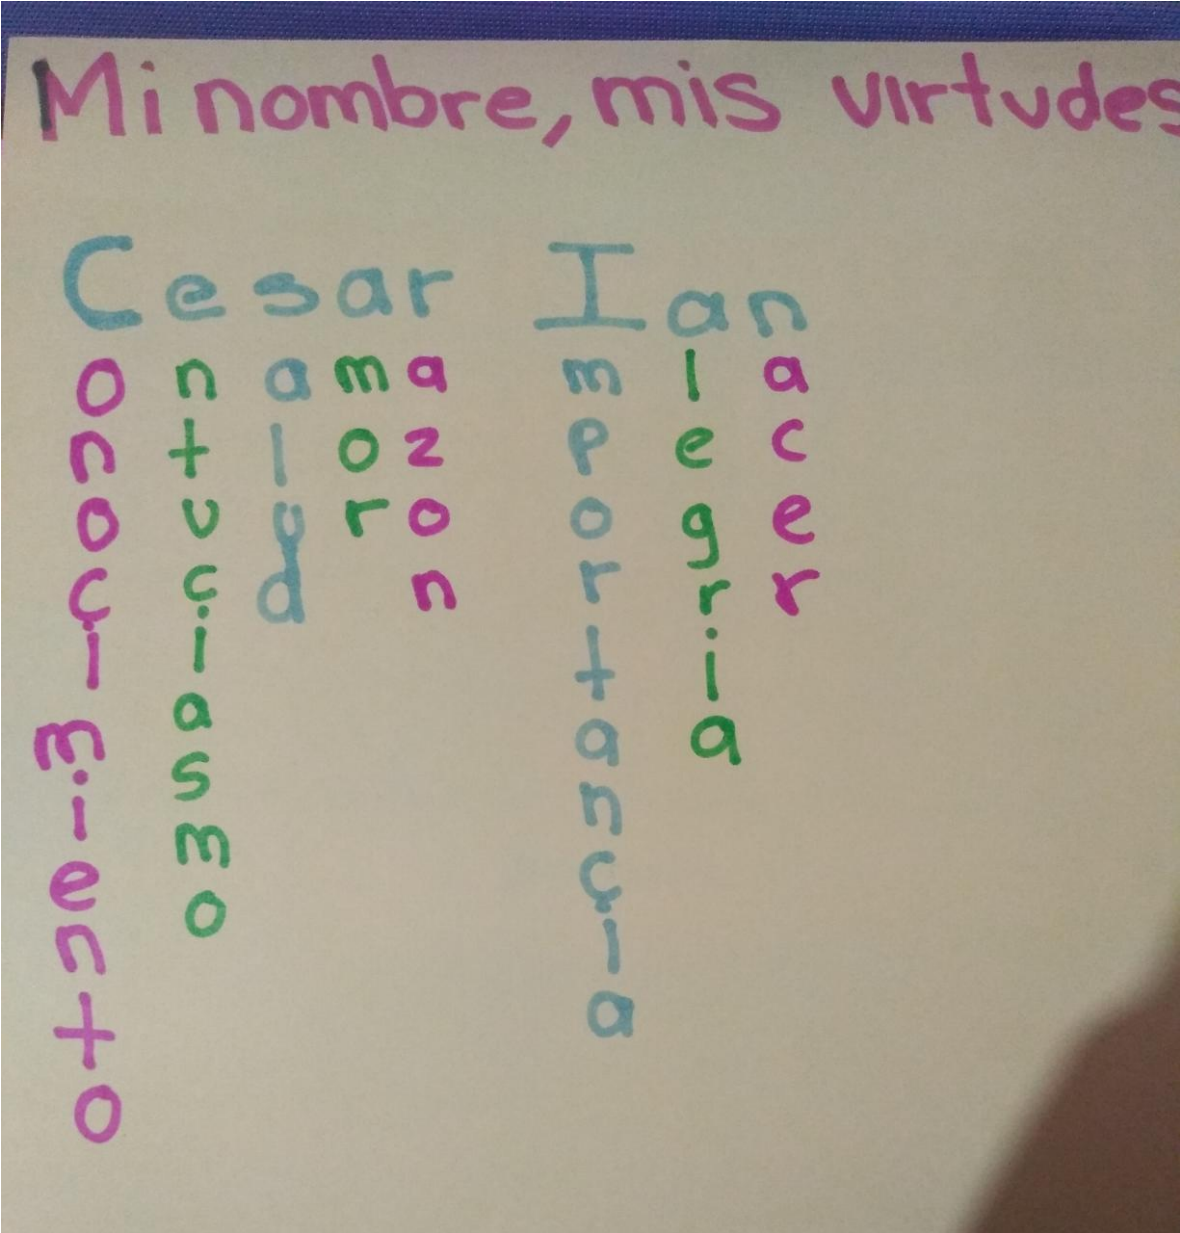 Mi nombre, mis virtudes
Cesar Ian
onocimiento
ntuciasmo
alud
mor
azon
mportancia
legria
acer